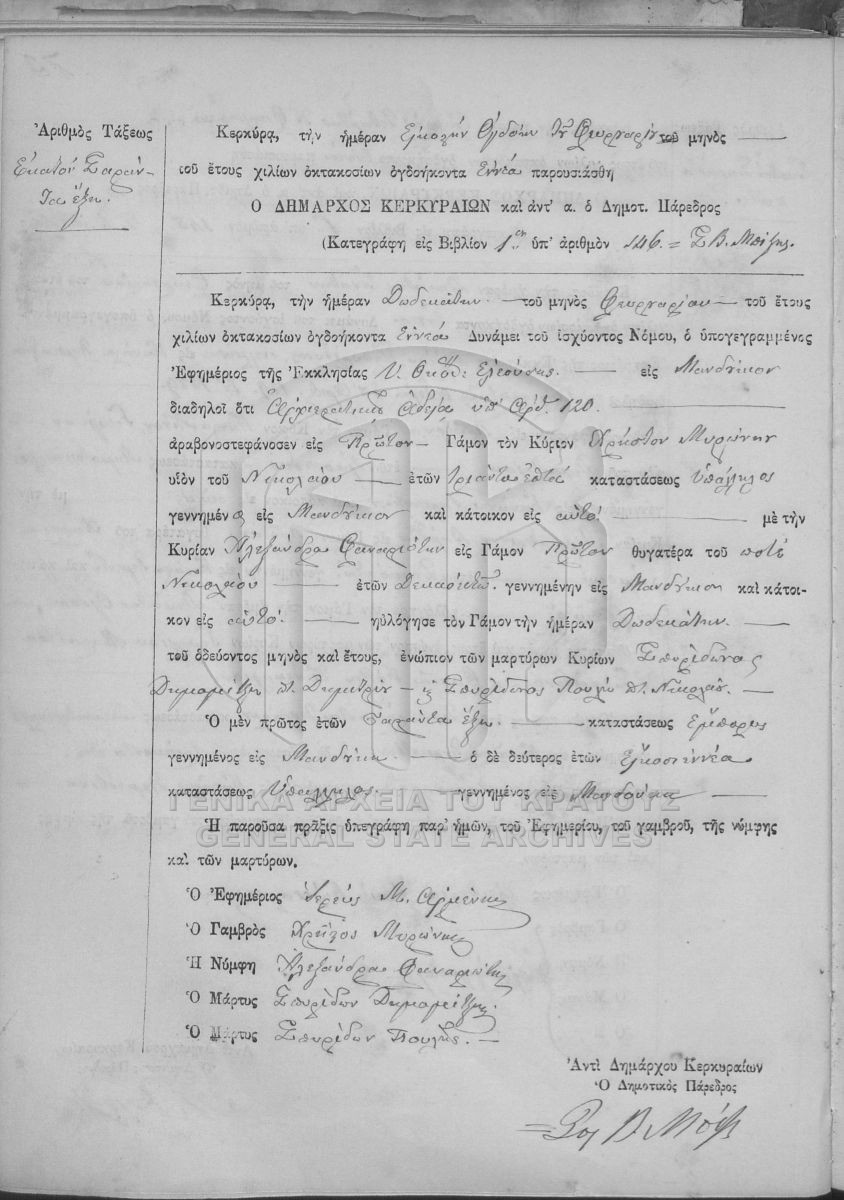 Ἀριθμὸς Τάξεως
Ἑκατόν Σαράν-
τα ἕξη.
Κερκύρᾳ, τὴν ἡμέραν Εἰκοστὴν Ὀγδόην Φευρουαρίου τοῦ μηνὸς
τοῦ ἔτους χιλίων ὀκτακοσίων ὀγδοήκοντα Ἐννέα παρουσιάσθη
Ο ΔΗΜΑΡΧΟΣ ΚΕΡΚΥΡΑΙΩΝ καὶ ἀντ' α. ὁ Δημοτ. Πάρεδρος
(Κατεγράφη εἰς Βιβλίον 1ον ὑπ' ἀριθμὸν 146. = Σ Β.
Κερκύρᾳ, τὴν ἡμέραν Δωδεκάτην τοῦ μηνὸς Φευρουαρίου τοῦ ἔτους
χιλίων ὀκτακοσίων ὀγδοήκοντα Ἐννέα Δυνάμει τοῦ ἰσχύοντος Νόμου, ὁ ὑπογεγραμμένος
Ἐφημέριος τῆς Ἐκκλησίας Υ. Θεοτ: Ἐλεούσης. εἰς Μανδύκιον
διαδηλοῖ ὅτι Ἀρχιερατικῇ ἀδείᾳ ὑπ' ἀριθ. 120.
ἀραβονοστεφάνοσεν εἰς Πρῶτον Γάμον τὸν Κύριον Χρῆστον Μυρώνην
υἱὸν τοῦ Νικολάου ἐτῶν τριάντα ἑπτά καταστάσεως ὑπάλληλος
γεννημένον εἰς Μανδύκιον καὶ κάτοικον εἰς αὐτό. μὲ τὴν
Κυρίαν Ἀλεξάνδρα Φαναριώτην εἰς Γάμον Πρῶτον θυγατέρα τοῦ ποτὲ
Νικολάου ἐτῶν Δεκαοκτώ. γεννημένην εἰς Μανδύκιον καὶ κάτοι-
κον εἰς αὐτό. ηὐλόγησε τὸν Γάμον τὴν ἡμέραν Δωδεκάτην.
τοῦ ὁδεύοντος μηνὸς καὶ ἔτους, ἐνώπιον τῶν μαρτύρων Κυρίων Σπυρίδωνος
π. Δημητρίου Σπυρίδωνος Πουλῆ π. Νικολάου.
Ὁ μὲν πρῶτος ἐτῶν Σαράντα ἕξη. καταστάσεως Ἔμπορος
γεννημένος εἰς Μανδύκι ὁ δὲ δεύτερος ἐτῶν Εἴκοσι ἐννέα
καταστάσεως Ὑπάλληλος. γεννημένος εἰς
ΓΕΝΙΚΑ ΑΡΧΕΙΑ ΤΟΥ ΚΡΑΤΟΥΣ
Ἡ παροῦσα πρᾶξις ὑπεγράφη παρ' ἡμῶν, τοῦ Ἐφημερίου, τοῦ γαμβροῦ, τῆς νύμφης
GENERAL STATE ARCHIVES
καὶ τῶν μαρτύρων.
Ὁ Ἐφημέριος Ἱερεὺς Μ.
Ὁ Γαμβρὸς Χρῆστος Μυρώνης
Ἡ Νύμφη Ἀλεξάνδρα Φαναριώτη
Ὁ Μάρτυς Σπυρίδων
Ὁ Μάρτυς Σπυρίδων Πουλῆς.
Ἀντὶ Δημάρχου Κερκυραίων
Ὁ Δημοτικὸς Πάρεδρος